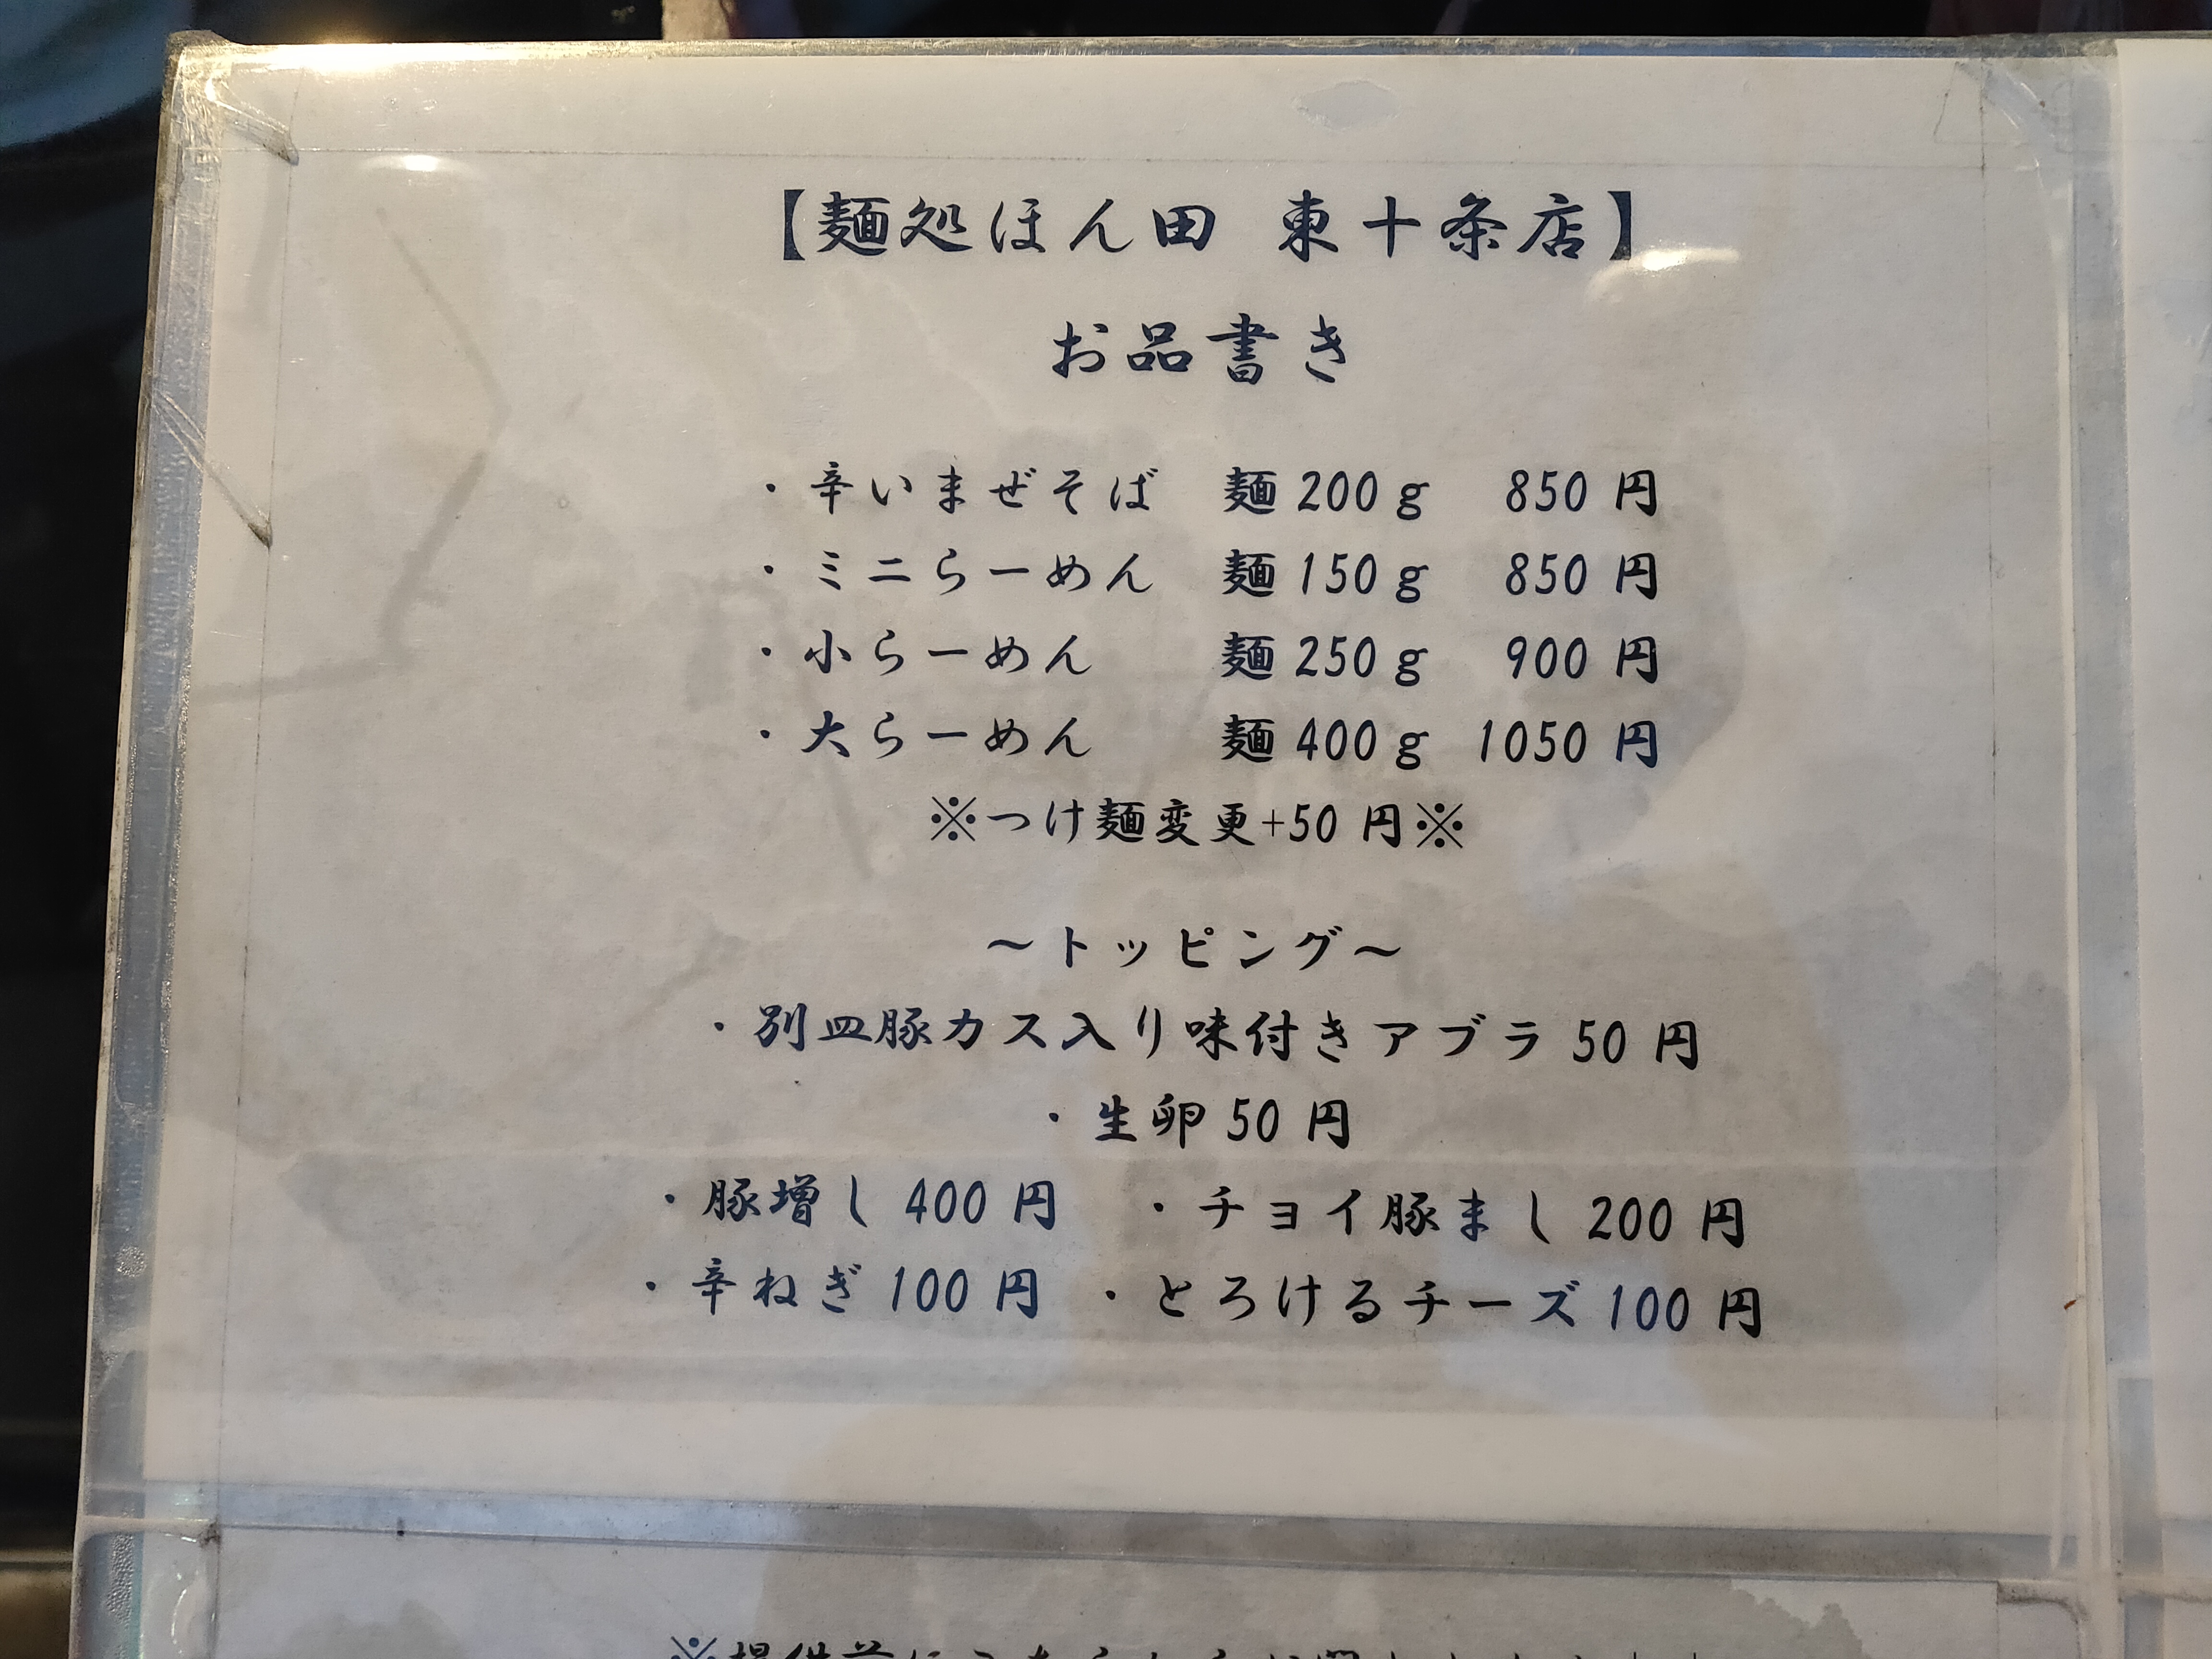 【麺処ほん田 東十条店】
お品書き
・辛いまぜそば 麺200g 850円
・ミニらーめん 麺150g 850円
・小らーめん 麺250g 900円
・大らーめん 麺400g 1050円
※つけ麺変更+50円※
～トッピング～
・別皿豚カス入り味付きアブラ50円
・生卵50円
・豚増し400円 ・チョイ豚まし200円
・辛ねぎ100円 ・とろけるチーズ100円